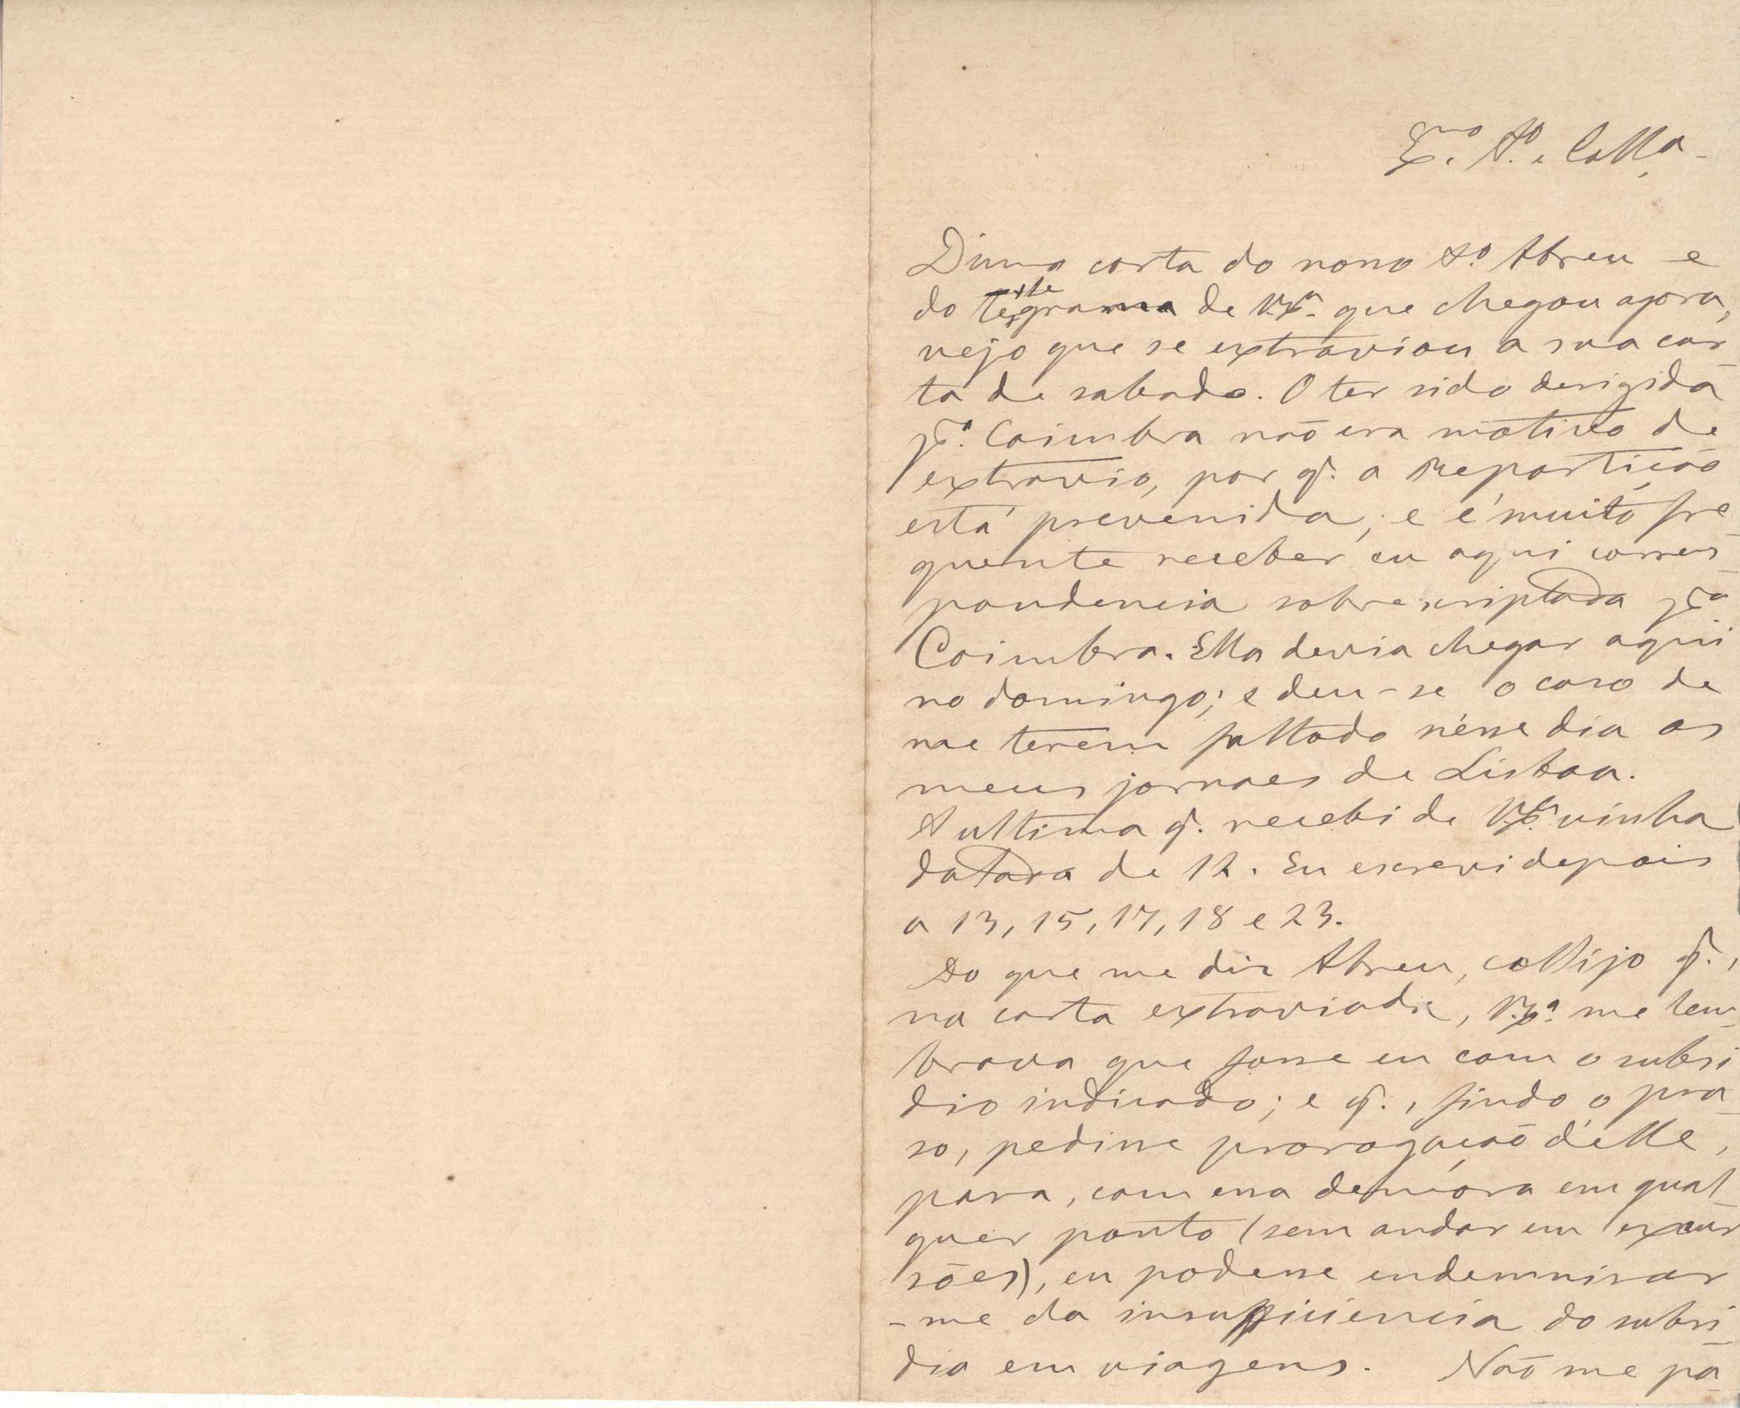 Ex.mo Sr. e Coll.a
D'uma carta do nosso Sr. Abreu e
do telegrama de V. Ex.a que chegou agora,
vejo que se extraviou a sua car-
ta de sabado. O ter sido dirigida
p.a Coimbra não era motivo de
extravio, por q. a Repartição
está prevenida, e é muito fre-
quente receber eu aqui corres-
pondencia sobrescriptada p.a
Coimbra. Ella devia chegar aqui
no domingo; e deu-se o caso de
me terem faltado n'esse dia os
meus jornaes de Lisboa.
A ultima q. recebi de V. Ex.a vinha
datada de 12. Eu escrevi depois
a 13, 15, 17, 18 e 23.
Do que me diz Abreu, collijo q.,
na carta extraviada, V. Ex.a me lem-
brava que fosse eu com o subsi-
dio indicado; e q., findo o pra-
so, pedisse prorogação d'elle,
para, com essa demora em qual-
quer ponto (sem andar em excur-
sões), eu podesse endemnisar-
-me da insufficiencia do subsi-
dio em viagens. Não me pa-